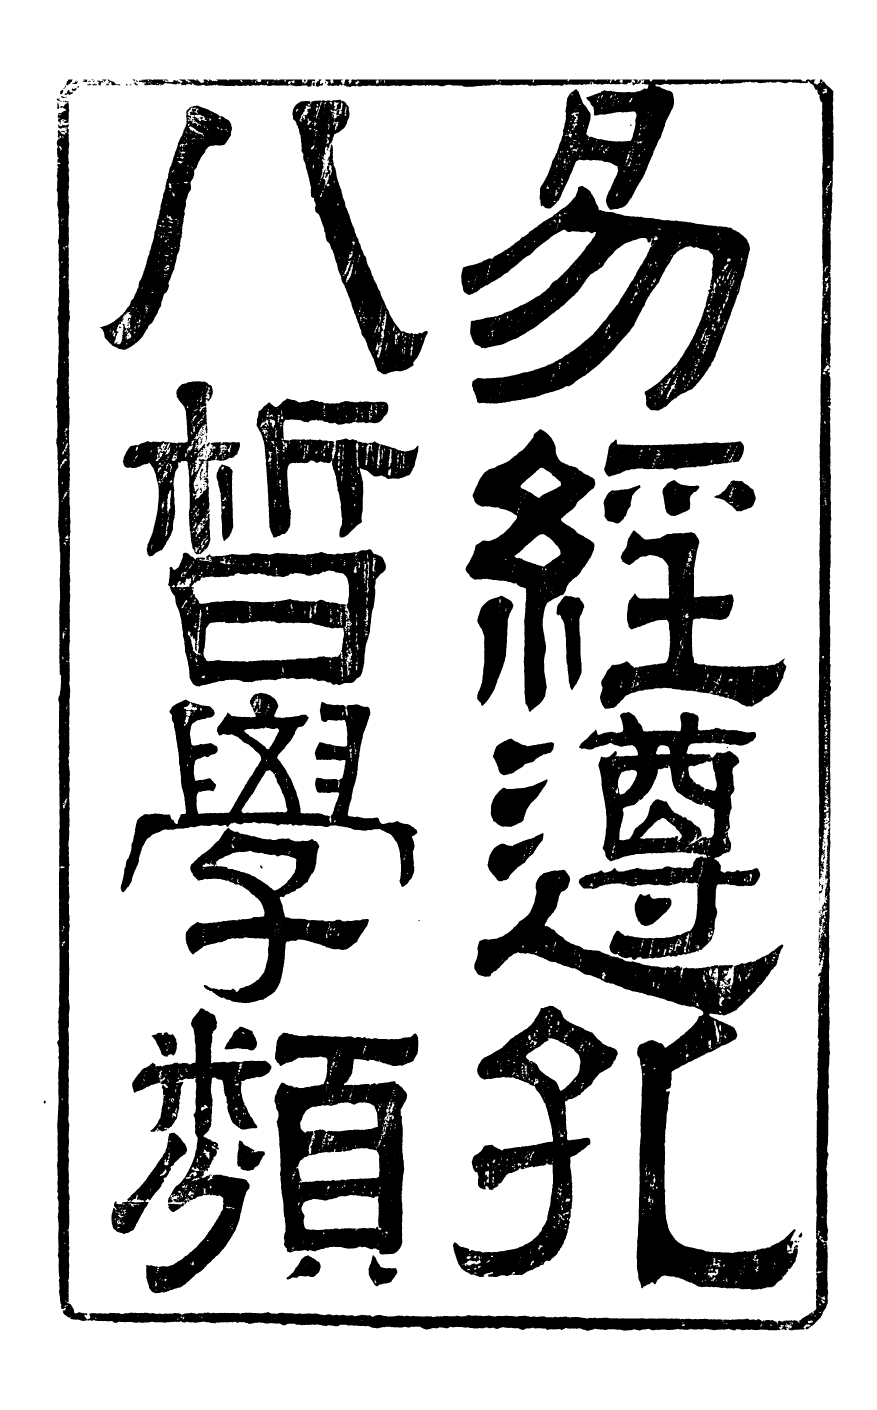 易經遵孔
八晳學類